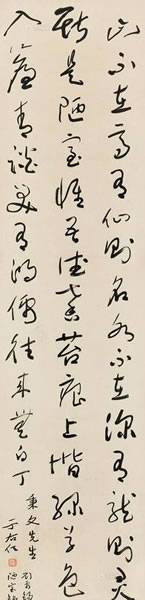 山不在高有仙則名水不在深有龍則灵
斯是陋室惟吾德馨苔痕上階綠草色
入簾青談笑有鴻儒往来無白丁
秉文先生
于右任
劉禹錫
陋室銘